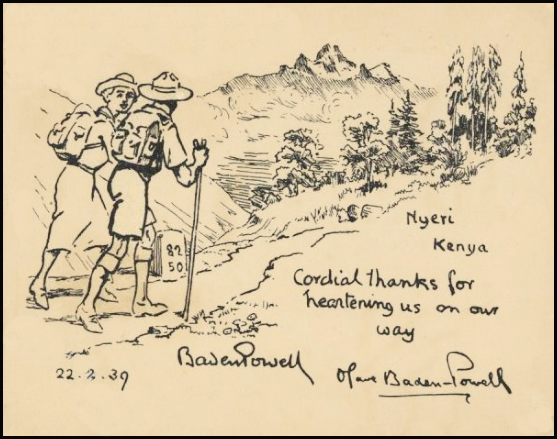 82
50
Nyeri
Kenya
Cordial thanks for
heartening us on our
way
Baden Powell
Olave Baden-Powell
22.2.39